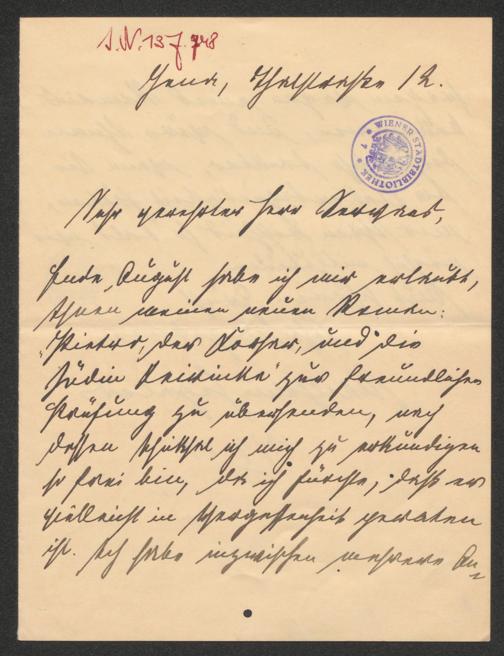 I.N. 137.748
Jena, Thalstraße 12.
WIENER STADTBIBLIOTHEK
Sehr geehrter Herr Servaes,
Ende August habe ich mir erlaubt,
Ihnen meinen neuen Roman:
"Pietro, der Korsar, und die
Jüdin Cheirinca" zur freundlichen
Prüfung zu übersenden, nach
dessen Schicksal ich mich zu erkundigen
so frei bin, da ich fürchte, daß er
vielleicht in Vergessenheit geraten
ist. Ich habe inzwischen mehrere An=